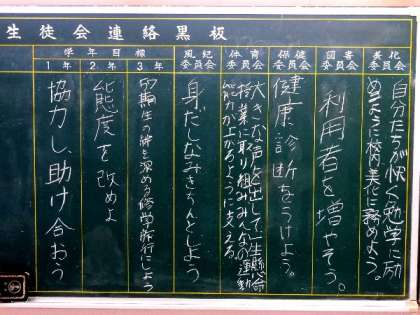 生徒会連絡黒板
学年目標
1年
2年
3年
風紀委員会
体育委員会
保健委員会
図書委員会
美化委員会
自分たちが快く勉学に励
めるように校内美化に務めよう。
利用者を増やそう。
健康診断をうけよう。
大きな声を出して一生懸命
授業に取り組みみんなの運動
能力が上がるように支える
身だしなみきちんとしよう
生の絆を深める修学旅行にしよう
態度を改めよ
協力し、助け合おう